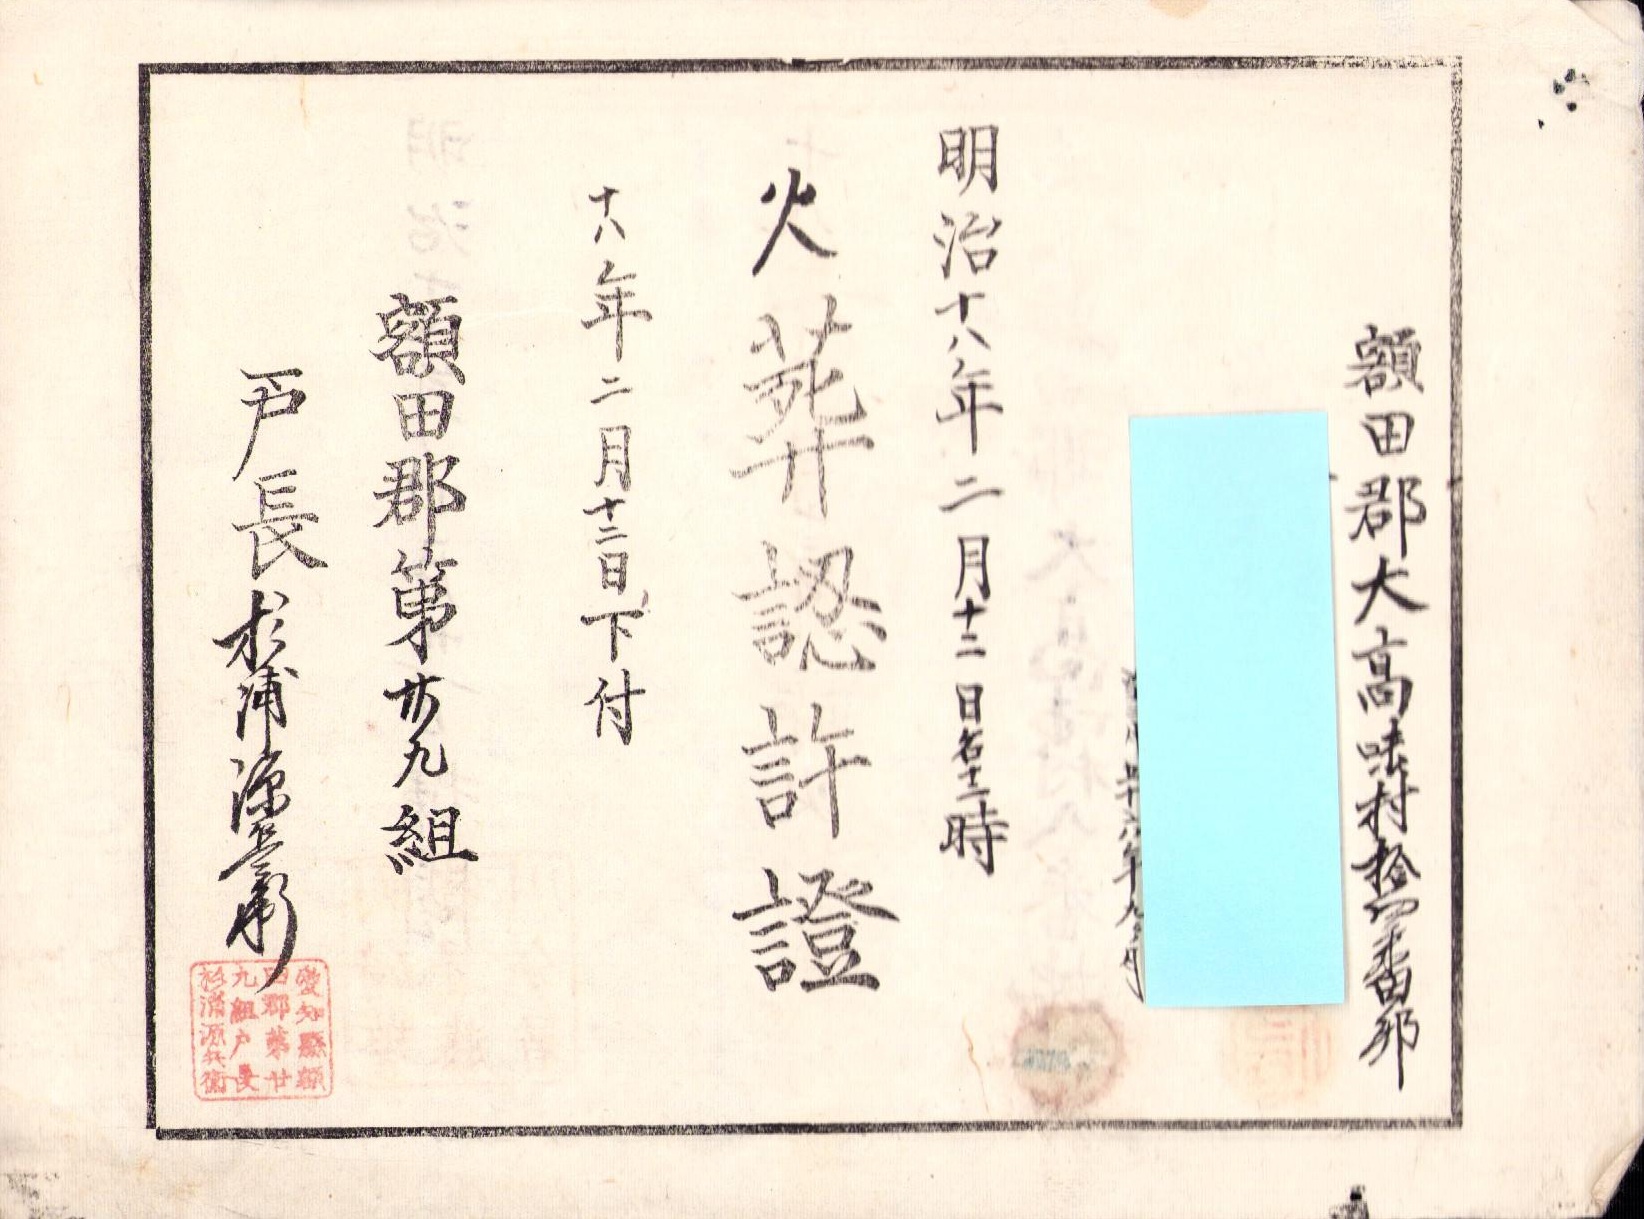 額田郡大高味村拾四番邸
年九ヶ月
明治十八年二月十二日
時
火葬認許證
十八年二月十二日下付
額田郡第廿九組
戸長杉浦源兵衛
愛知縣額
田郡第廿
九組戸長
杉浦源兵衛